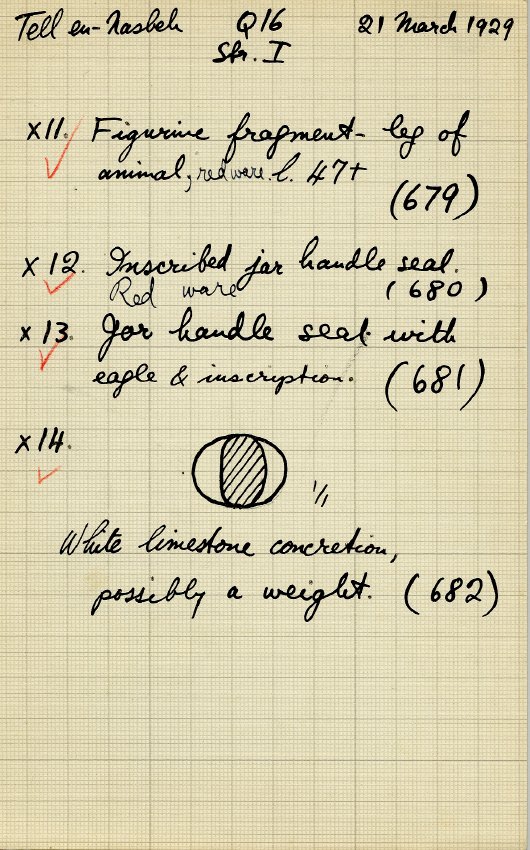 Tell en-Nasbeh Q16 21 March 1929
Str. I
x11. Figurine fragment - leg of
animal; red ware. l. 47+
(679)
x12. Inscribed jar handle seal.
Red ware (680)
x13. Jar handle seal with
eagle & inscription. (681)
x14.
1/1
White limestone concretion,
possibly a weight. (682)